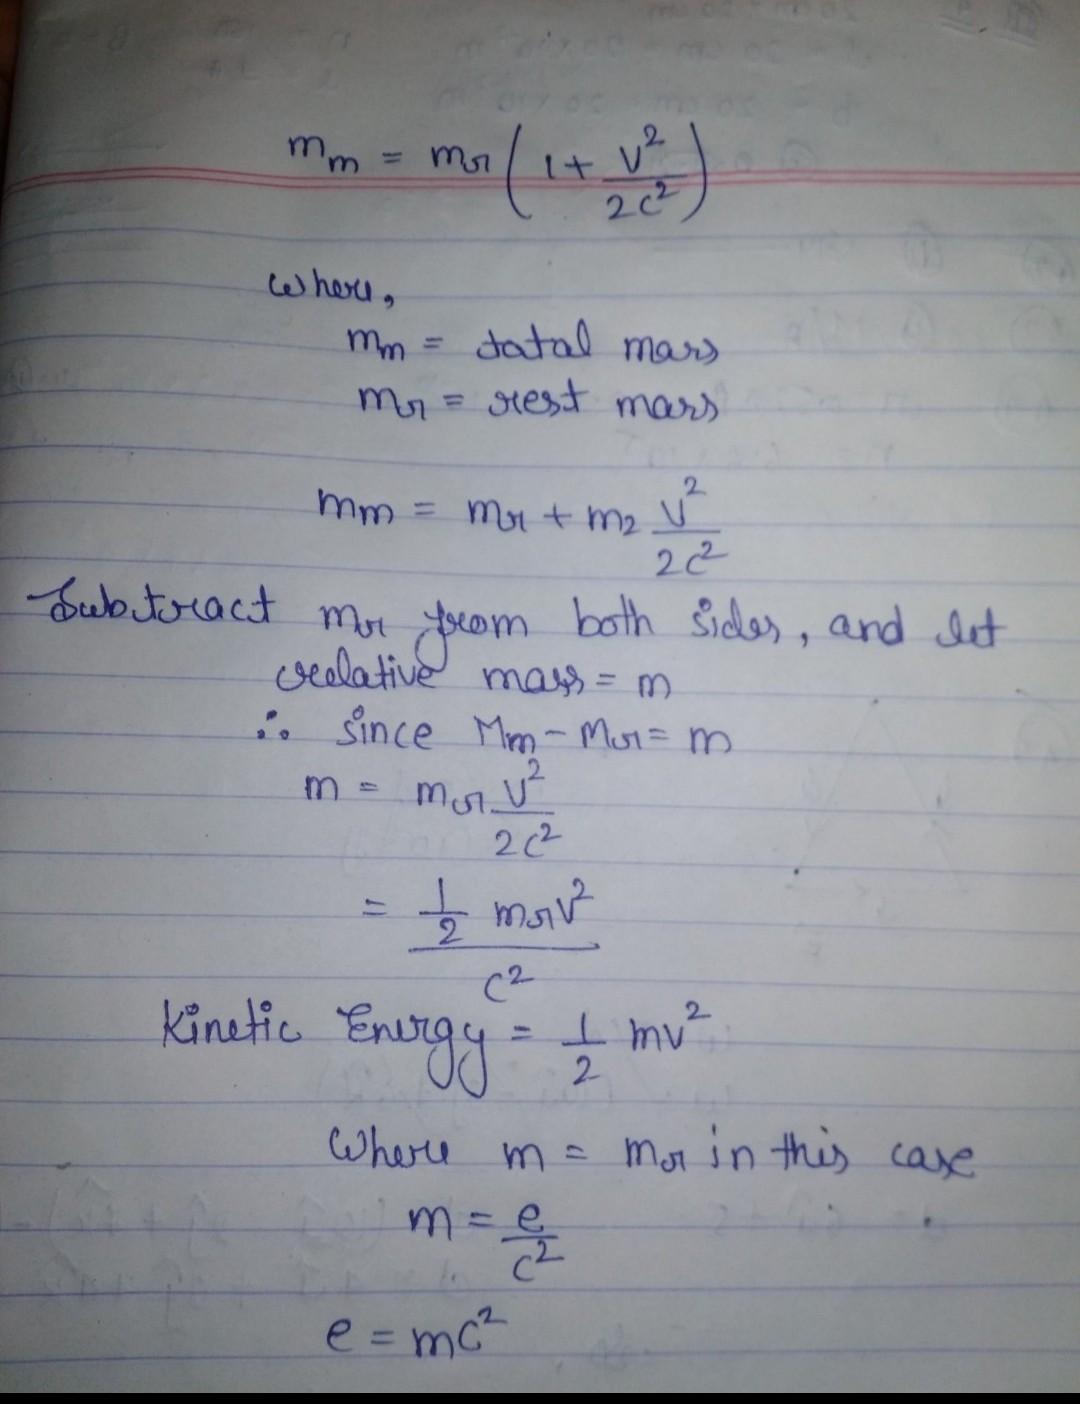 m_m = m_r (1 + v²/2c²)
where,
m_m = total mass
m_r = rest mass
m_m = m_r + m_2 v²/2c²
Subtract m_r from both sides, and let
relative mass = m
∴ since M_m - M_r = m
m = m_r v²/2c²
= 1/2 m_r v² / c²
Kinetic Energy = 1/2 mv²
Where m = m_r in this case
m = e/c²
e = mc²